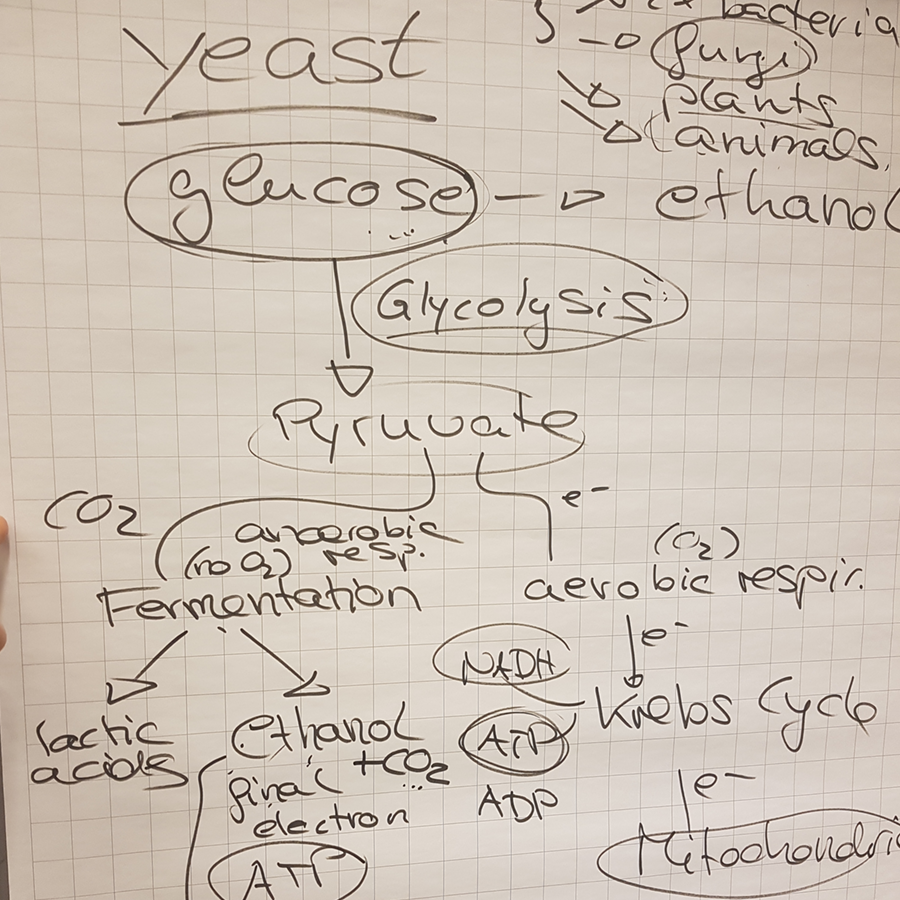 bacteria
yeast
fungi
plants
animals.
glucose
ethanol
Glycolysis
Pyruvate
CO2
e-
anaerobic
(no O2) resp.
(O2)
Fermentation
aerobic respir.
e-
NADH
Krebs Cycle
lactic
acids
ethanol
+CO2
final
electron
ATP
ADP
e-
Mitochondri
ATP